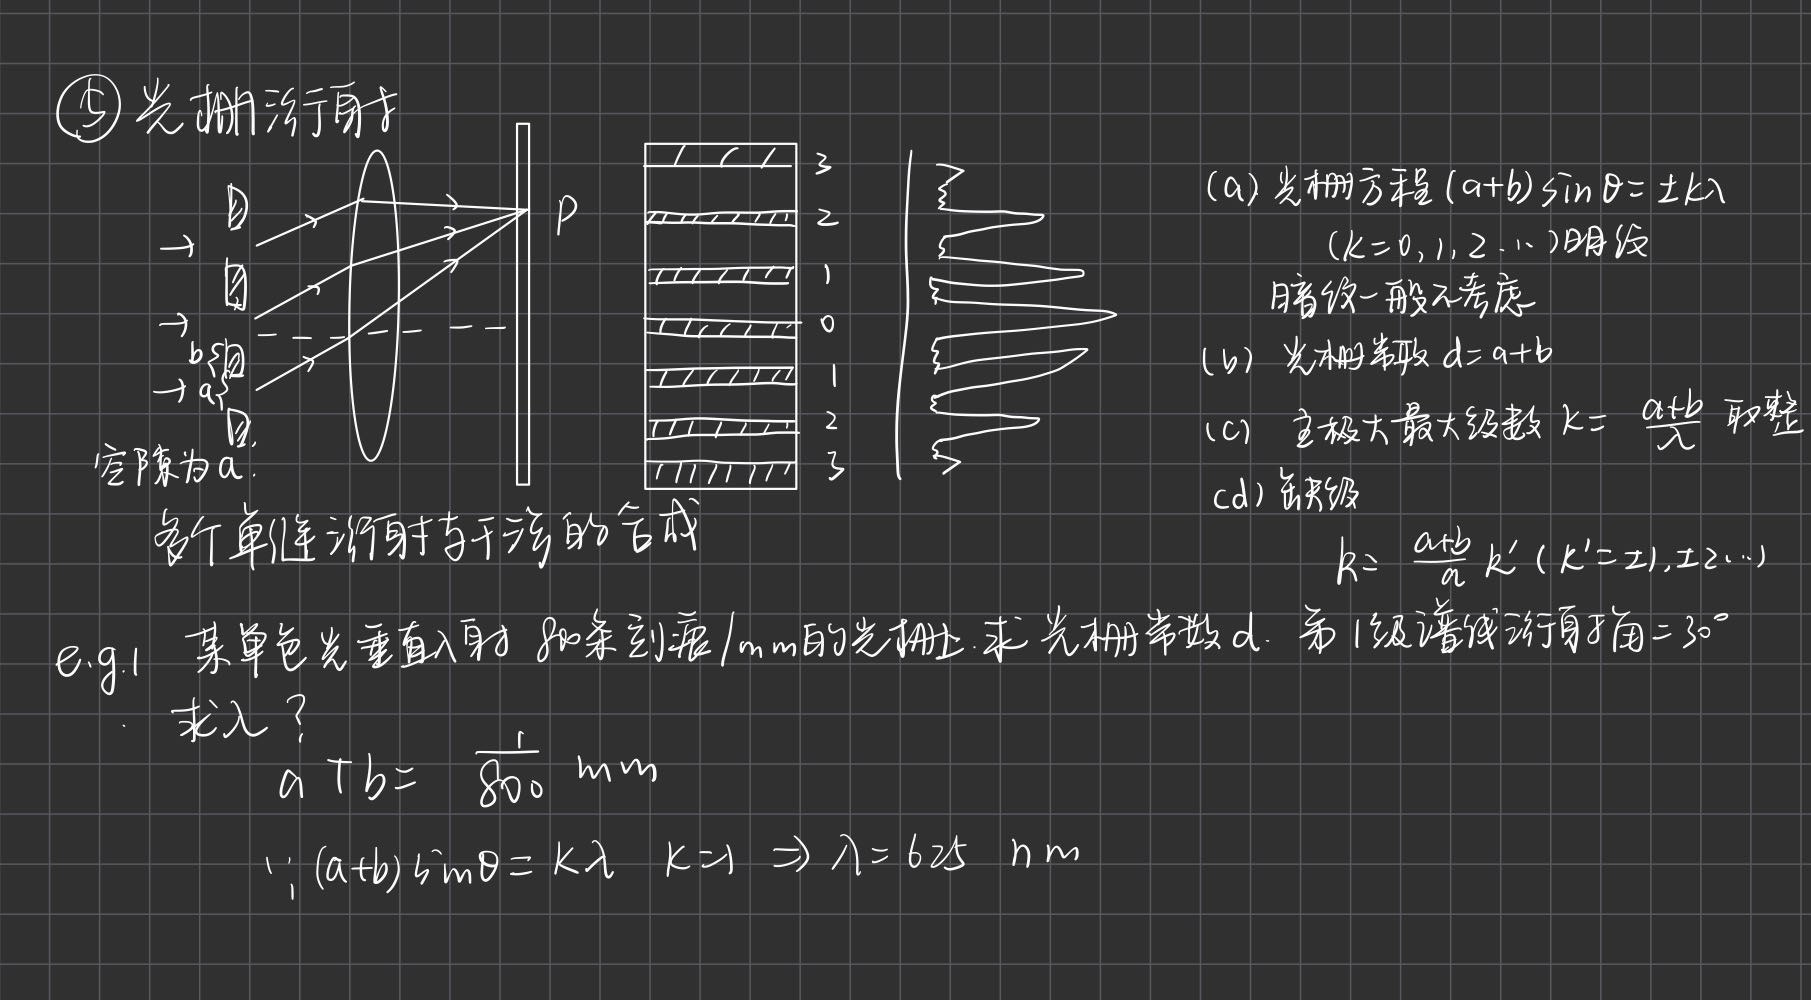 ⑤ 光栅衍射
P
b
a
空隙为a.
3
2
1
0
1
2
3
各个单缝衍射与干涉的合成
(a) 光栅方程 (a+b) sin θ = ±kλ
(k=0, 1, 2 ...) 明纹
暗纹一般不考虑
(b) 光栅常数 d=a+b
(c) 主极大最大级数 k= \frac{a+b}{λ} 取整
(d) 缺级
k= \frac{a+b}{a} k' (k'=±1, ±2...)
e.g.1 某单色光垂直入射 800条刻痕/mm的光栅上. 求 光栅常数 d. 第1级谱线衍射角=30°
求λ?
a+b= \frac{1}{800} mm
∵ (a+b) sinθ = kλ k=1 ⇒ λ=625 nm